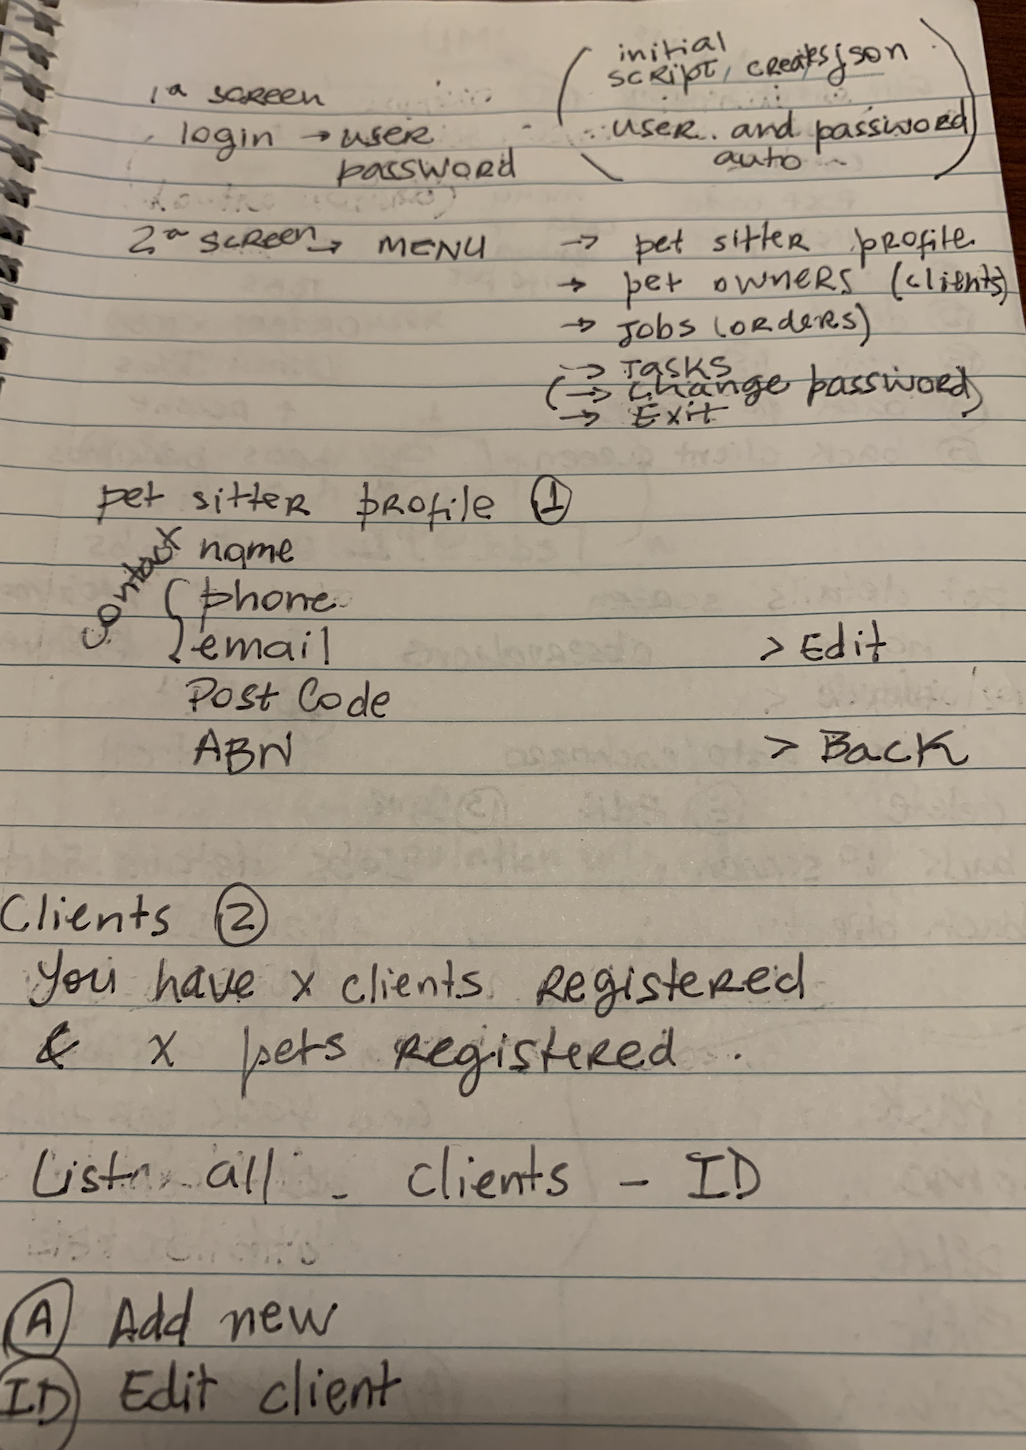 1ª screen
login → user
password
(initial
script, creates json
user and password
auto)
2ª screen → MENU → pet sitter profile
→ pet owners (clients)
→ Jobs (orders)
→ Tasks
(→ change password)
→ Exit
pet sitter profile ①
contact
name
phone
email > Edit
Post Code
ABN > Back
Clients ②
You have x clients registered
& x pets registered.
all - clients - ID
Ⓐ Add new
ID Edit client